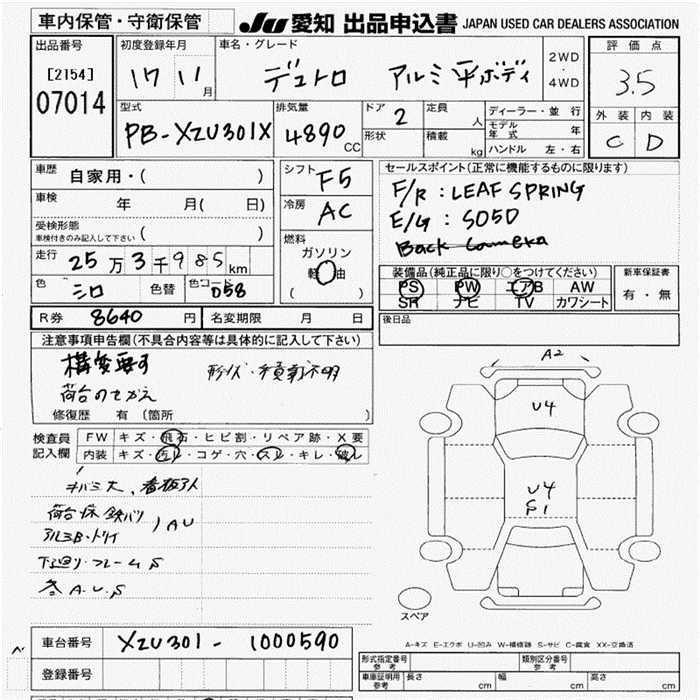 車内保管・守衛保管
JU 愛知 出品申込書 JAPAN USED CAR DEALERS ASSOCIATION
出品番号
[2154]
07014
初度登録年月
17 11月
車名・グレード
デュトロ アルミ平ボディ
2WD
4WD
評価点
3.5
外装 内装
C D
型式
PB-XZU301X
排気量
4890 CC
ドア 2
形状
定員 人
積載 kg
ディーラー・並行
モデル年式 年
ハンドル 左・右
車歴 自家用・( )
車検 年 月( 日)
受検形態
車検付きのみ記入して下さい ( )
走行 25万3千985km
色 シロ 色替 色コード 058
シフト F5
冷房 AC
燃料
ガソリン
軽油
( )
セールスポイント(正常に機能するものに限ります)
F/R : LEAF SPRING
E/G : S05D
Back Camera
装備品(純正品に限り○をつけてください)
PS PW エアB AW
SR ナビ TV カワシート
新車保証書
有・無
R券 8640 円 名変期限 月 日
後日品
注意事項申告欄(不具合内容等は具体的に記入して下さい)
構変要す 形状・積載不明
荷台のせかえ
修復歴 有 (箇所 )
検査員記入欄
FW キズ・飛石・ヒビ割・リペア跡・X要
内装 キズ・汚レ・コゲ・穴・スレ・キレ・破レ
看板アト
荷台床鉄バリ
AU
下廻り・フレームS
各A.U.S
A2
U4
U4
S1
スペア
A-キズ E-エクボ U-凹み W-補修跡 S-サビ C-腐食 XX-交換済
車台番号 XZU301-1000590
登録番号
形式指定番号 参考
類別区分番号 参考
車庫証明用 参考 長さ cm 幅 cm 高さ cm